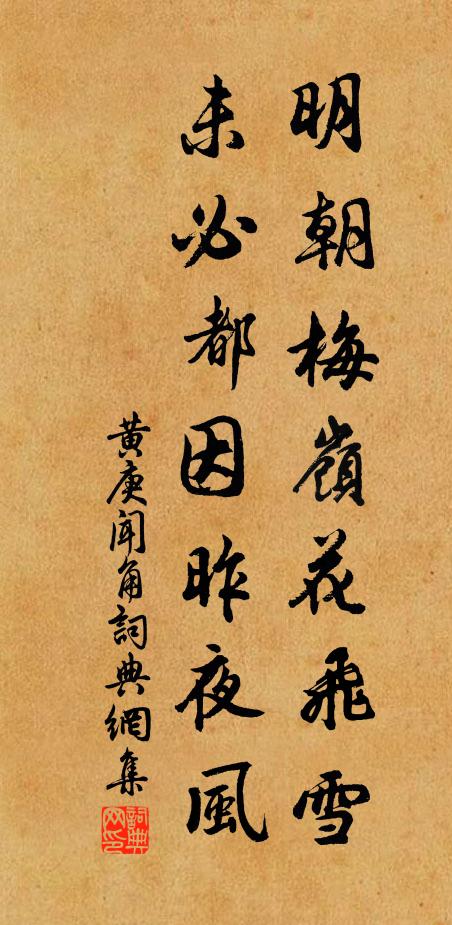 明朝梅嶺花飛雪
未必都因昨夜風
黄庚闻角詞典網集
詞典網印